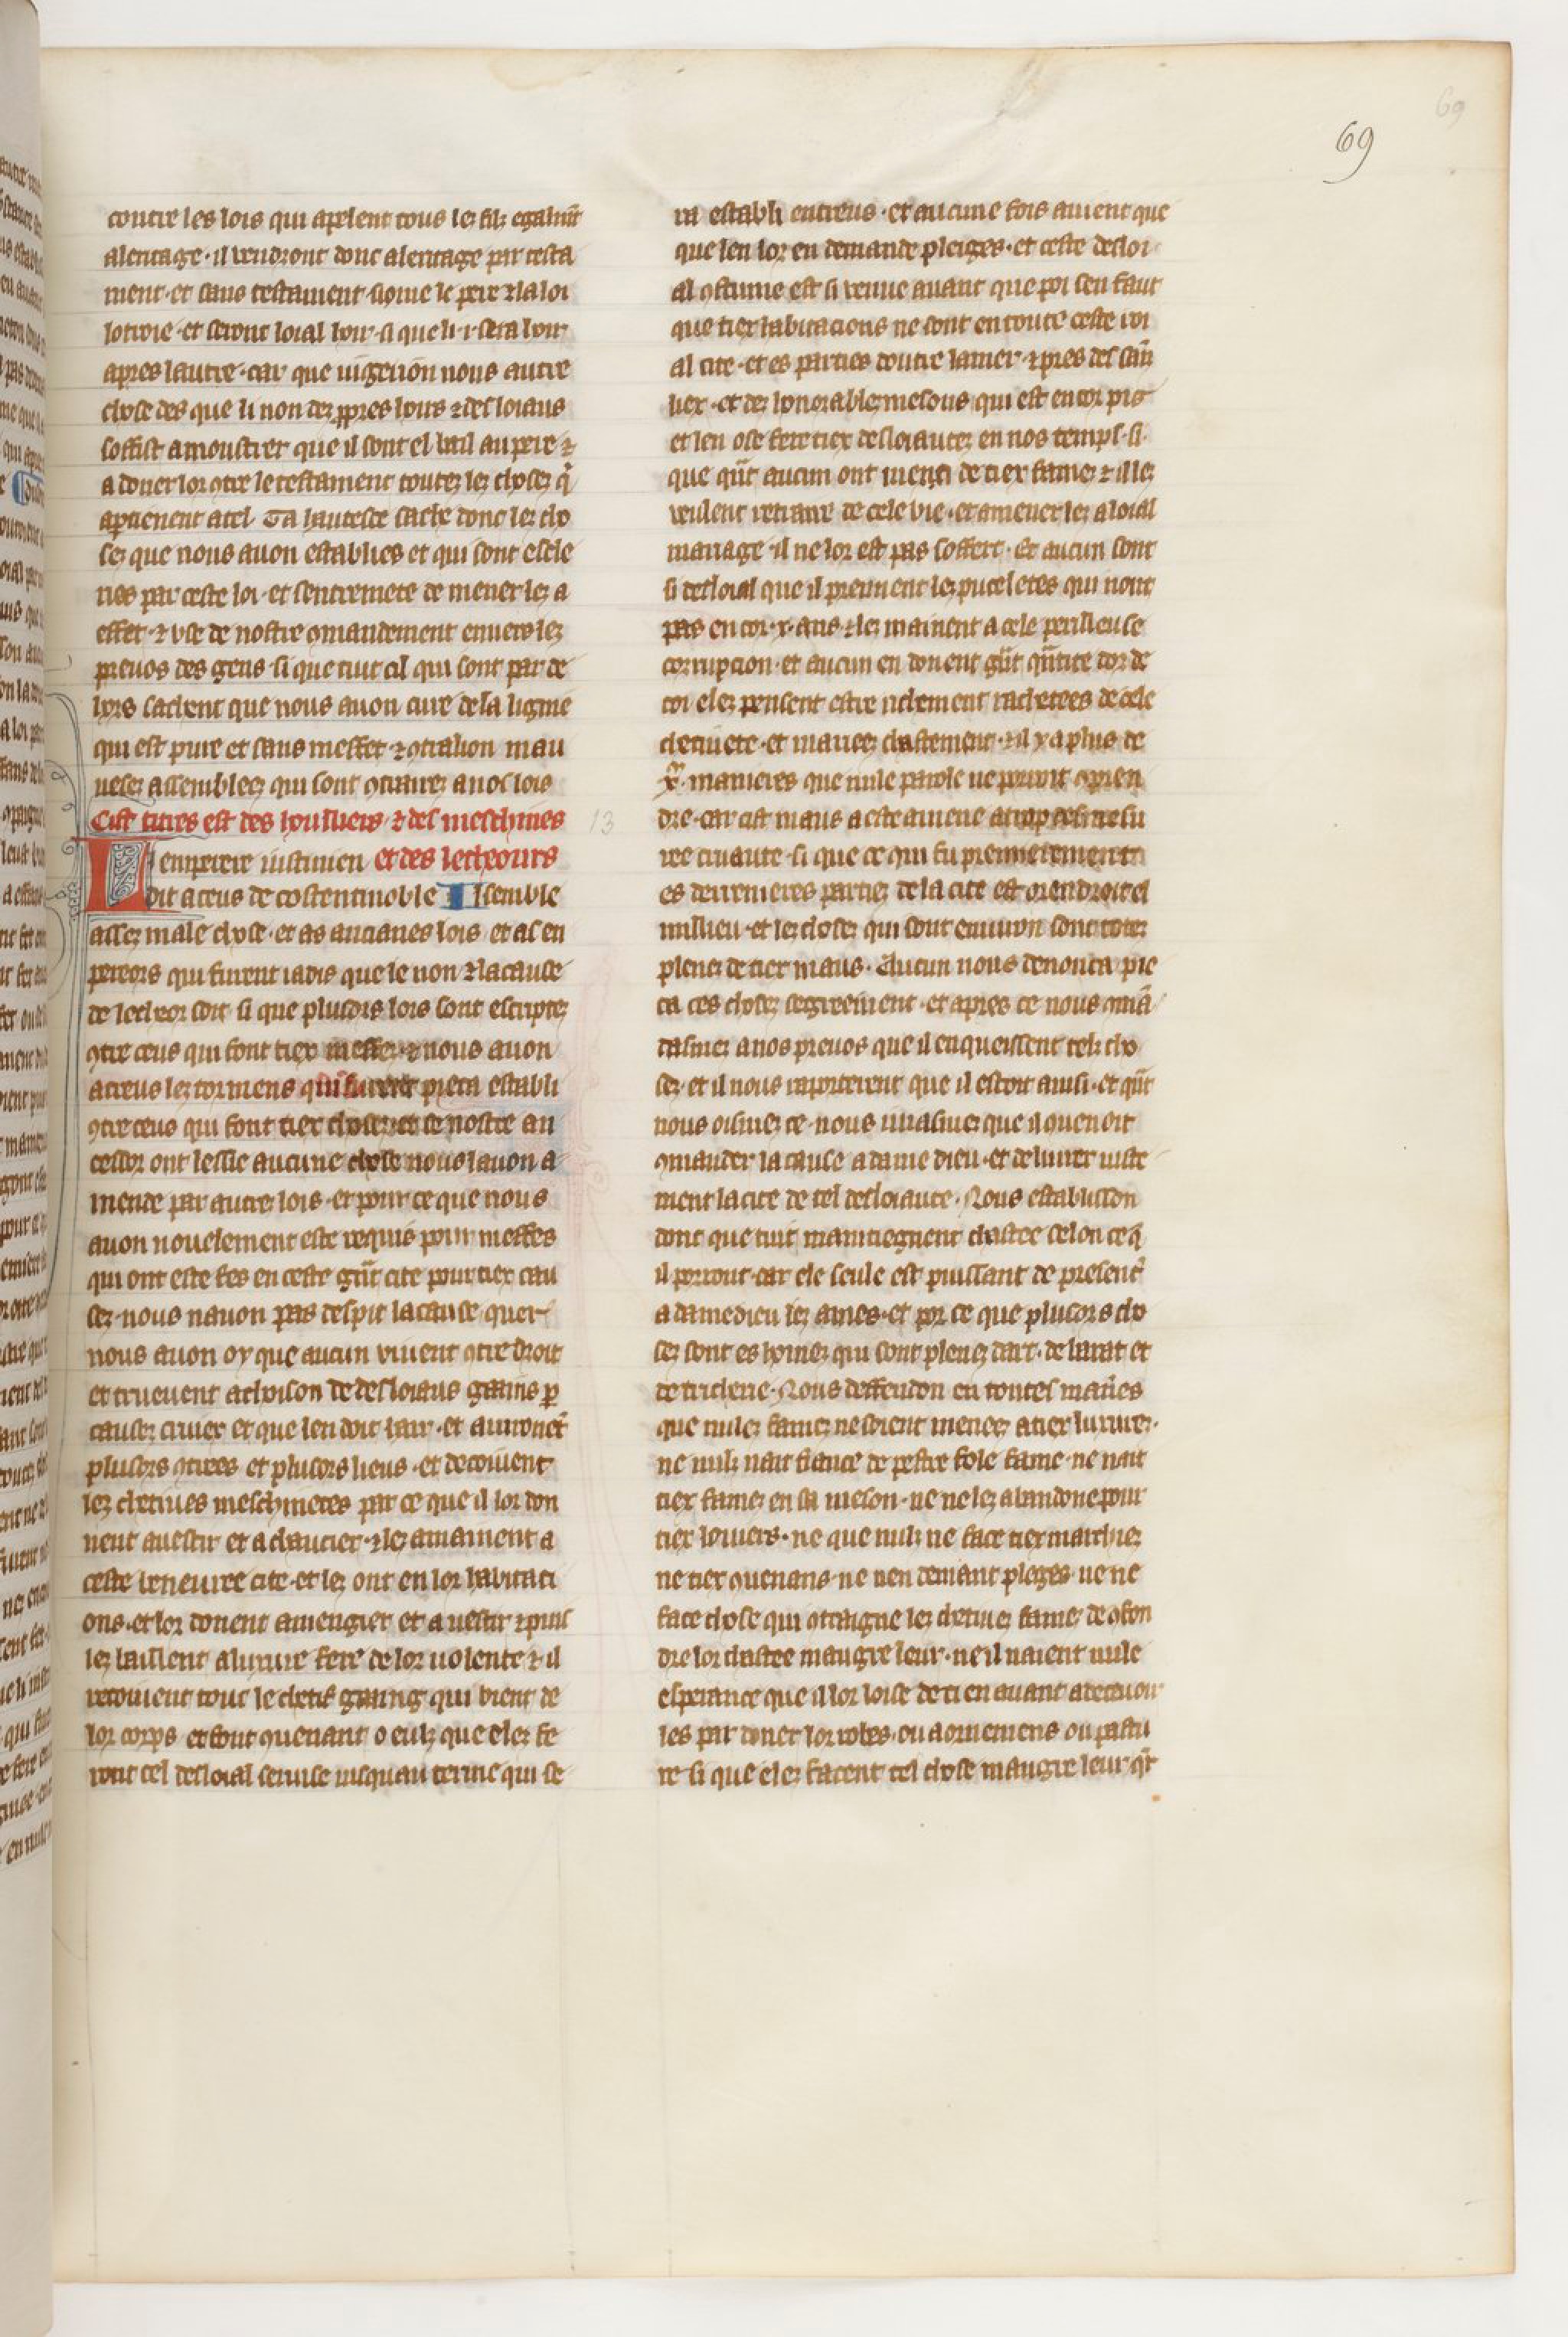 69
69
contre les lois qui apelent tous lez filz egalmt̃
aleritage · il vendront donc aleritage par testa
ment · et sans testament · si ꝯme le pere ⁊ la loi
lotroie · et seront loial hoir · si que li · i · sera hoir
apres lautre · car que
chose des que li non dez ꝓpres hoirs ⁊ des loiaus
soffist a moustrer que il sont el bail au pere ⁊
a doner lor ꝯtre le testament toutez lez chosez q̃
apartienent a cel · Ta hautesce sache donc lez cho
sez que nous auon establies et qui sont escle
ries par ceste loi · et sentremete de mener lez a
effet · ⁊ vse de nostre ꝯmandement enuers lez
preuos des gens · si que tuit cil qui sont par de
hors sachent que nous auon cure de la lignie
qui est pure et sans meffet · ⁊ ꝯtralion mau
uesez assembleez qui sont ꝯtrairez a nos lois
Cist titres est des houlliers ⁊ des meschines
Lemperere iustinien et des lecheours
dit a ceus de costentinoble Il semble
assez male chose · et as ancianes lois · et as en
pereors qui furent iadis que le non ⁊ la cause
de lecheor soit · si que plusors lois sont escriptez
ꝯtre ceus qui font tiex meffez · ⁊ nous auon
acreus lez tormens qui furent pieca establi
ꝯtre ceus qui font tiex chosez · et se nostre an
cessor ont lessie aucune chose nous lauon a
mende par autrez lois · et pour ce que nous
auon nouelement este requis pour meffes
qui ont este fes en ceste gñt cite pour tiex cau
sez · nous nauon pas despit la cause · quer
nous auon oy que aucun viuent ꝯtre droit
et trueuent achoison de desloiaus gaains p
causez cruiex et que len doit hair · et auironẽt
plusors ꝯtrees et plusors lieus · et decoiuent
lez chetiues meschinetes par ce que il lor don
nent a vestir et a chaucier · ⁊ lez amainent a
ceste beneuree cite · et lez ont en lor habitaci
ons · et lor donent a mengier et a vestir ⁊ puis
lez baillent a luxure fere de lor uolente ⁊ il
recoiuent tout le chetif gaaing qui vient de
lor corps et font ꝯuenant o eulz que elez fe
ront cel desloial seruise iusquau terme qui se
13
ra establi entreus · et aucune fois auient que
que len lor en demande pleiges · et ceste desloi
al ꝯstume est si venue auant que poi sen faut
que tiex habitacions ne sont en toute ceste roi
al cite · et es parties doutre la mer · ⁊ pres des sãi
liex · et dez honorablez mesons qui est encor pis
et len ose fere tiex desloiautez en nos temps · si
que qñt aucun ont merci de tiex famez ⁊ il lez
veulent retraire de cele vie · et amener lez a loial
mariage · il ne lor est pas soffert · Et aucun sont
si desloial que il prennent lez puceletes qui nont
pas encor · x · ans · ⁊ lez mainent a cele perilleuse
corrupcion · et aucun en donent gñt qñtite dor de
coi elez pensent estre richement rachetees de cele
chetiuete · et mauez chastement · ⁊ il y a plus de
x manieres que nule parole ne porroit ꝯpren
dre · car cist maus a este amene a trop
ree cruaute · si que ce qui fu premierement
es derrenieres partiez de la cite est orendroit el
millieu · et lez chosez qui sont enuiron sont totez
plenez de tiex maus · Aucun nous denonca pie
ca ces chosez segreement · et apres ce nous ꝯmã
dasmez a nos preuos que il enqueissent telz cho
sez · et il nous raporterent que il estoit ainsi · et qñt
nous oismez ce · nous iuiasmez que il ꝯuenoit
ꝯmander la cause a dame dieu · et deliurer viste
ment la cite de tel desloiaute · Nous establisson
donc que tuit maintiegnent chastee selon ce q̃
il porront · car ele seule est puissant de presentẽ
a dame dieu lez ames · et por ce que plusors cho
sez sont es homez qui sont plenez dart · de barat et
de tricherie · Nous deffendon en toutes manĩes
que nulez famez ne soient menees a tiex luxurez ·
ne nulz nait fiance de pestre fole fame · ne nait
tiex famez en sa meson · ne ne lez abandone pour
tiex louiers · ne que nulz ne face tiex marchiez
ne tiex ꝯuenans · ne nen demant pleges · ne ne
face chose qui ꝯtraigne lez chetiuez famez de ꝯfon
dre lor chastee maugre leur · ne il naient nule
esperance que il lor loise de ci en auant a deceuoir
les par doner lor robes · ou aornemens ou pastu
re · si que elez facent tel chose maugre leur · qr̃